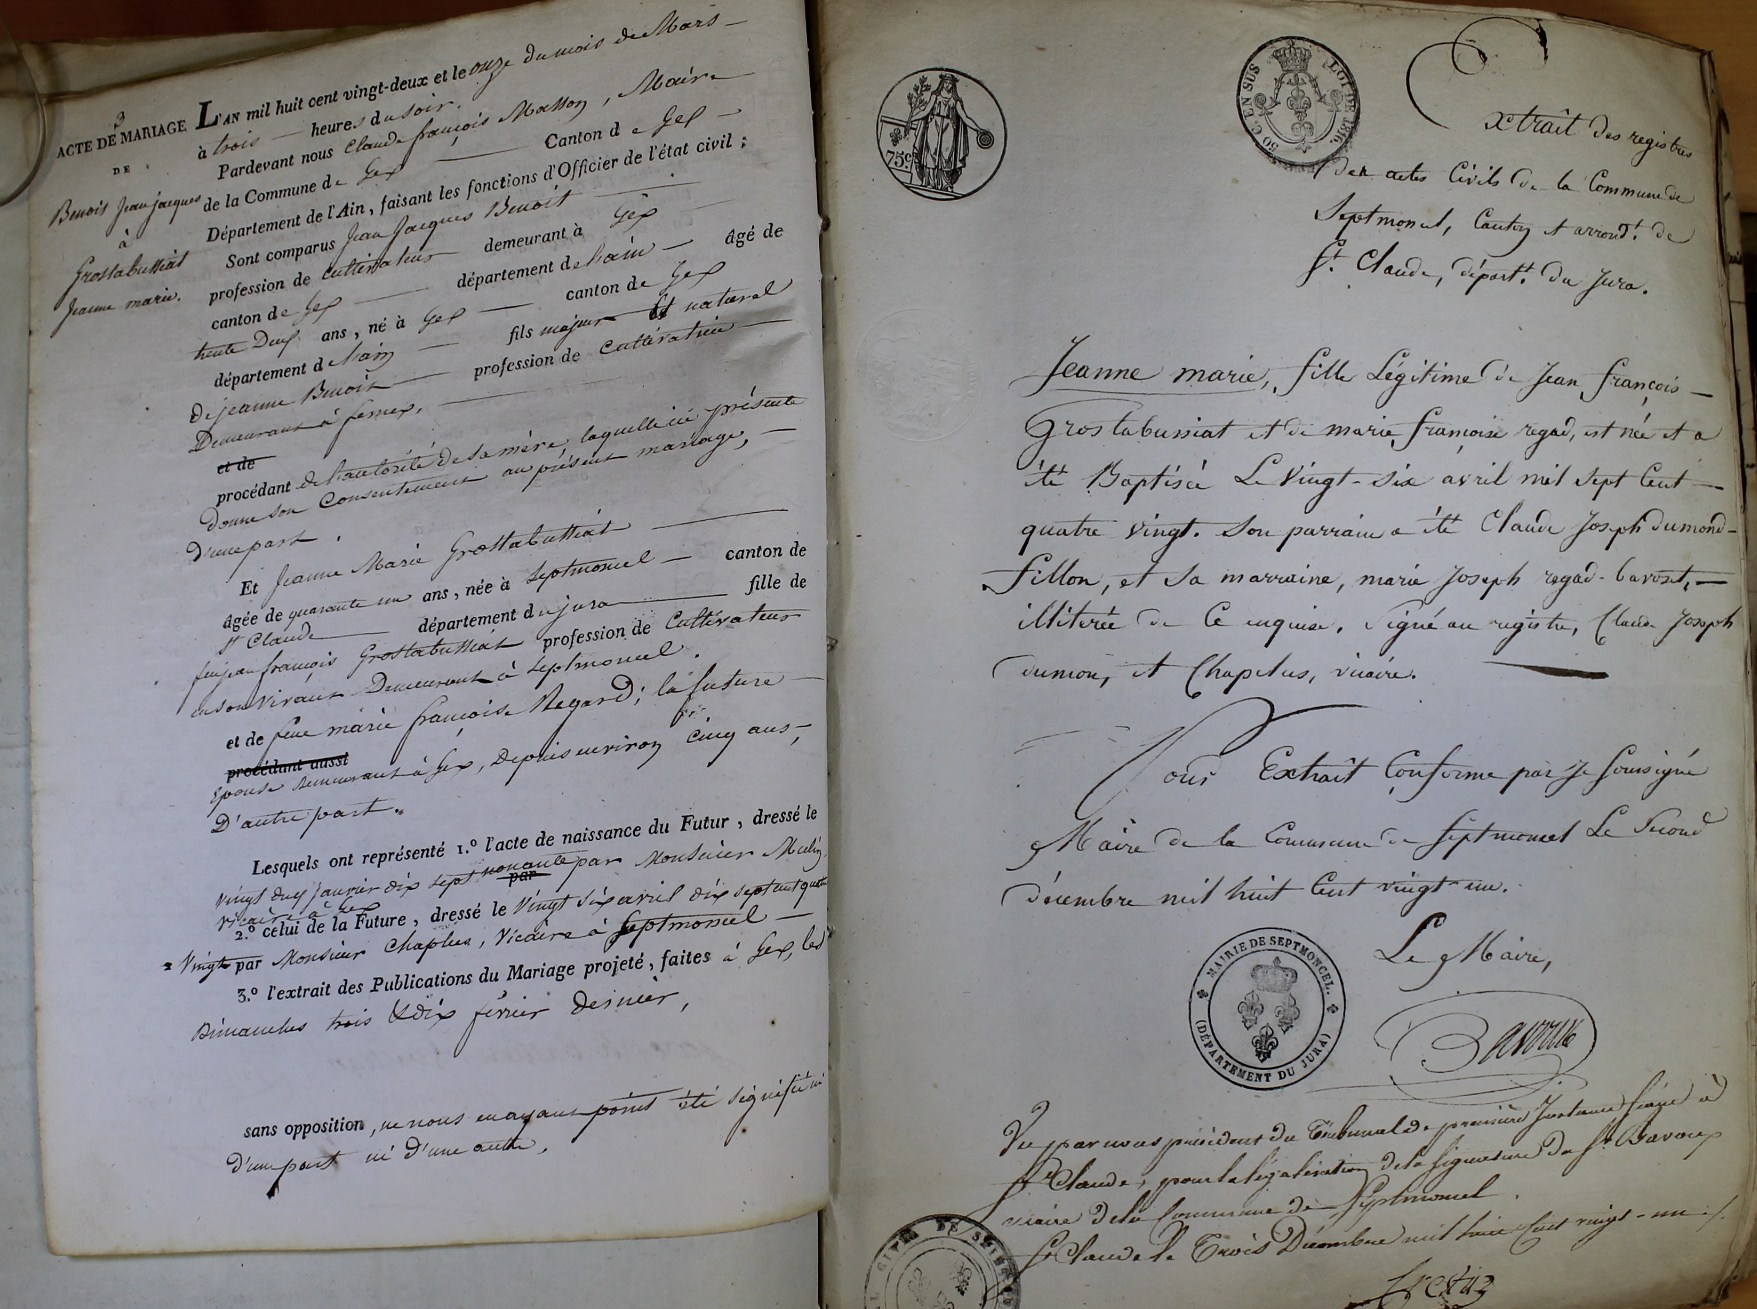 3
ACTE DE MARIAGE
DE
Benoit Jean Jacques
à
Grostabussiat
Jeanne marie.
L'AN mil huit cent vingt-deux et le onze du mois de Mars
à trois heures du soir.
Pardevant nous Claude françois Masson, Maire
de la Commune de Gex Canton de Gex
Département de l'Ain, faisant les fonctions d'Officier de l'état civil;
Sont comparus Jean Jacques Benoit
profession de cultivateur demeurant à Gex
canton de Gex département de l'ain âgé de
trente Deux ans, né à Gex canton de Gex
département d l'ain fils majeur et naturel
de jeanne Benoit profession de cultivatrice
Demeurant à fernex,
et de
procédant de l'autorité de sa mère, laquelle ici présente
donne son Consentement au présent mariage,
D'une part.
Et Jeanne Marie Grostabussiat
âgée de quarante un ans, née à Septmoncel canton de
St Claude département du jura fille de
feu jean françois Grostabussiat profession de Cultivateur
en son vivant Demeurant à Septmoncel.
et de feue marie françoise Regard; la future
procédant aussi
Epouse demeurant à Gex, Depuis environ cinq ans,
D'autre part.
Lesquels ont représenté 1.º l'acte de naissance du Futur, dressé le
vingt deux janvier dix sept nonante par Monsieur
par
vicaire à Gex
2.º celui de la Future, dressé le vingt six avril dix sept cent quatre
vingt par Monsieur Chaplus, Vicaire à Septmoncel
3.º l'extrait des Publications du Mariage projeté, faites à Gex, les
Dimanches trois & dix février dernier,
sans opposition, ne nous en ayant point été signifié ni
d'une part ni d'une autre,
75 c.
50 CEN SUS LOI DE 1816.
Extrait des registres
des actes Civils de la Commune de
Septmoncel, Canton et arrondt. de
St. Claude, départt. du Jura.
Jeanne marie, fille Légitime de Jean françois
Grostabussiat et de marie françoise regad, est née et a
été Baptisée Le Vingt-six avril mil sept Cent
quatre vingt. Son parrain a été Claude Joseph dumond-
fillon, et Sa marraine, marie Joseph regad-
illiterée de Ce enquise, Signé au registre, Claude Joseph
dumon, et Chapelus, vicaire.
Pour Extrait Conforme par Je Soussigné
Maire de la Commune de Septmoncel Le Second
décembre mil huit Cent vingt un.
Le Maire,
MAIRIE DE SEPTMONCEL.
(DÉPARTEMENT DU JURA)
Vu par nous président du Tribunal de première Instance séant à
St Claude, pour la légalisation de la signature du Sr.
maire de la Commune de Septmoncel.
St Claude le Trois Décembre mil huit Cent vingt-un